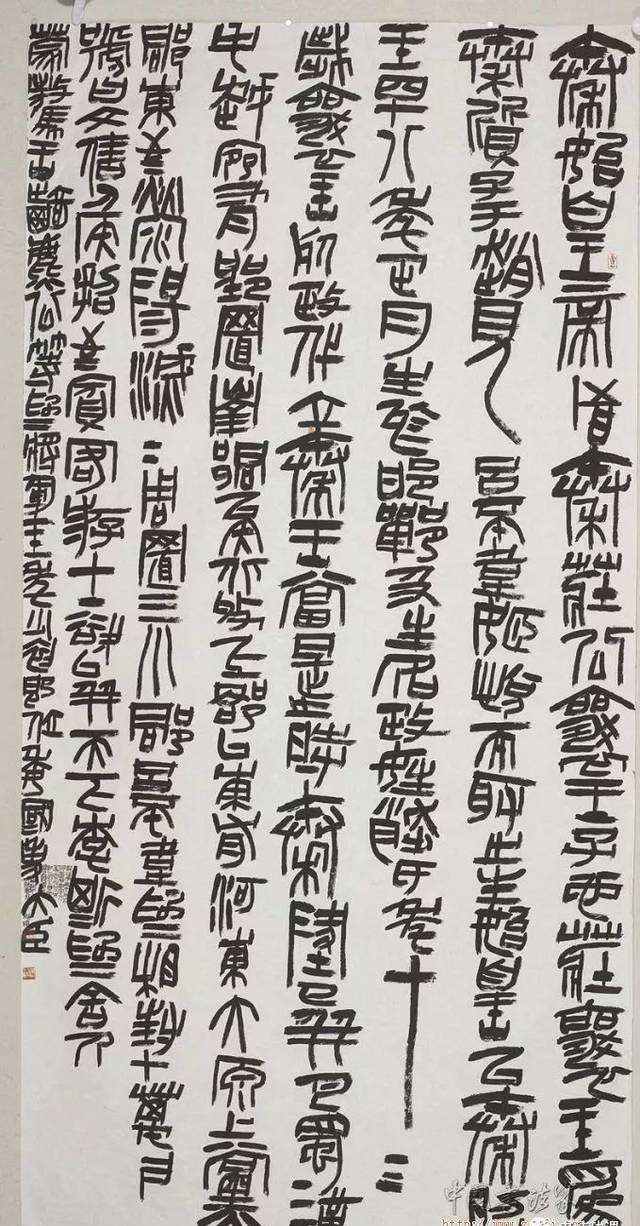 秦始皇帝者秦莊襄王子也莊襄王為
秦質子於趙見呂不韋姬悅而取之生始皇以秦昭
王四十八年正月生於邯鄲及生名政姓趙氏年十三
歲莊襄王死政代立為秦王當是之時秦地已并巴蜀漢
中越宛有郢置南郡矣北收上郡以東有河東太原上黨
郡東至滎陽滅二周置三川郡呂不韋為相封十萬戶
號曰文信侯招致賓客游士欲以并天下李斯為舍人
蒙驁王齮麃公等為將軍王年少初即位委國事大臣